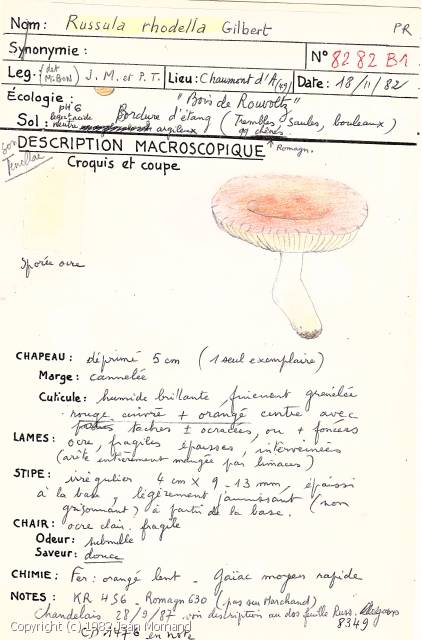 Nom: Russula rhodella Gilbert PR
Synonymie:
N° 8282 B1
Leg. (det M. BON) J. M. et P. T. Lieu: Chaumont d'A (49) Date: 18/11/82
Écologie: "Bois de Rouvoltz"
Sol: pH 6 neutre argileux Bordure d'étang (Trembles, saules, bouleaux)
qq chênes.
DESCRIPTION MACROSCOPIQUE ↑ Romagn.
Tenellae
Croquis et coupe
Sporée ocre
CHAPEAU: déprimé 5 cm (1 seul exemplaire)
Marge: cannelée
Cuticule: humide brillante, finement grenelée
rouge cuivré + orangé centre avec
taches ± ocracées, ou + foncées
LAMES: ocre, fragiles épaisses, interveinées
(arête entièrement mangée par limaces)
STIPE: irrégulier 4 cm X 9-13 mm, épaissi
à la base, légèrement jaunissant (non
grisonnant) à partir de la base.
CHAIR: ocre clair. fragile
Odeur: subnulle
Saveur: douce
CHIMIE: Fer: orangé lent - Gaïac moyen rapide
NOTES: KR 456 - Romagn 630 (pas vu Marchand)
Chandelais 28/9/87 voir description au dos feuille Russ.
8349
CD 1476 en note
Copyright (c) 1989 Jean Mornand